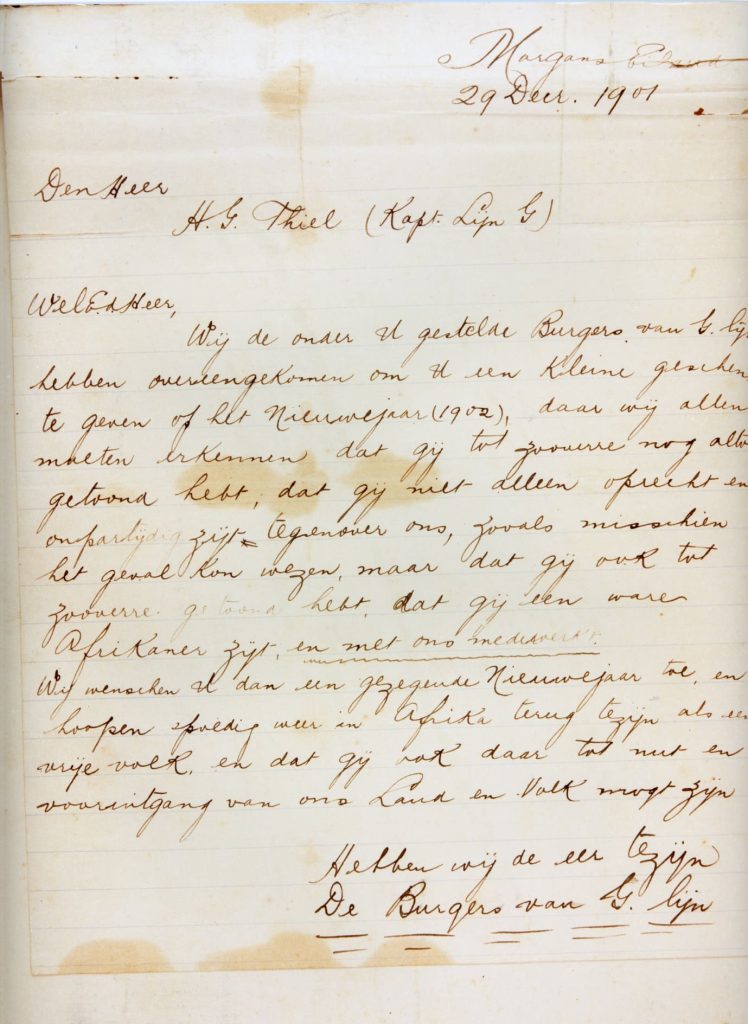 Morgans Eiland
29 Decr. 1901
Den Heer
H. G. Thiel (Kapt. Lijn G)
WelEd Heer,
Wij de onder U gestelde Burgers van G. lij
hebben overeengekomen om U een kleine geschen
te geven of het Nieuwejaar (1902), daar wij allen
moeten erkennen dat gij tot zooverre nog alto
getoond hebt, dat gij niet alleen oprecht en
onpartijdig zijt tegenover ons, zooals misschien
het geval kon wezen, maar dat gij ook tot
zooverre getoond hebt, dat gij een ware
Afrikaner zijt, en met ons medewerkt.
Wij wenschen U dan een gezegende Nieuwejaar toe, en
hoopen spoedig weer in Afrika terug tezijn als een
vrije volk, en dat gij ook daar tot nut en
vooruitgang van ons Land en Volk mogt zijn
Hebben wij de eer tezijn
De Burgers van G. lijn